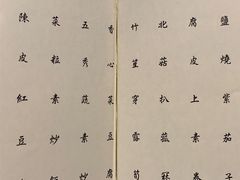 鹽燒紫茄子
腐皮上素卷
北菇扒
竹笙穿露筍
香心菜豆腐
五秀蔬素
菜粒素炒
陳皮紅豆